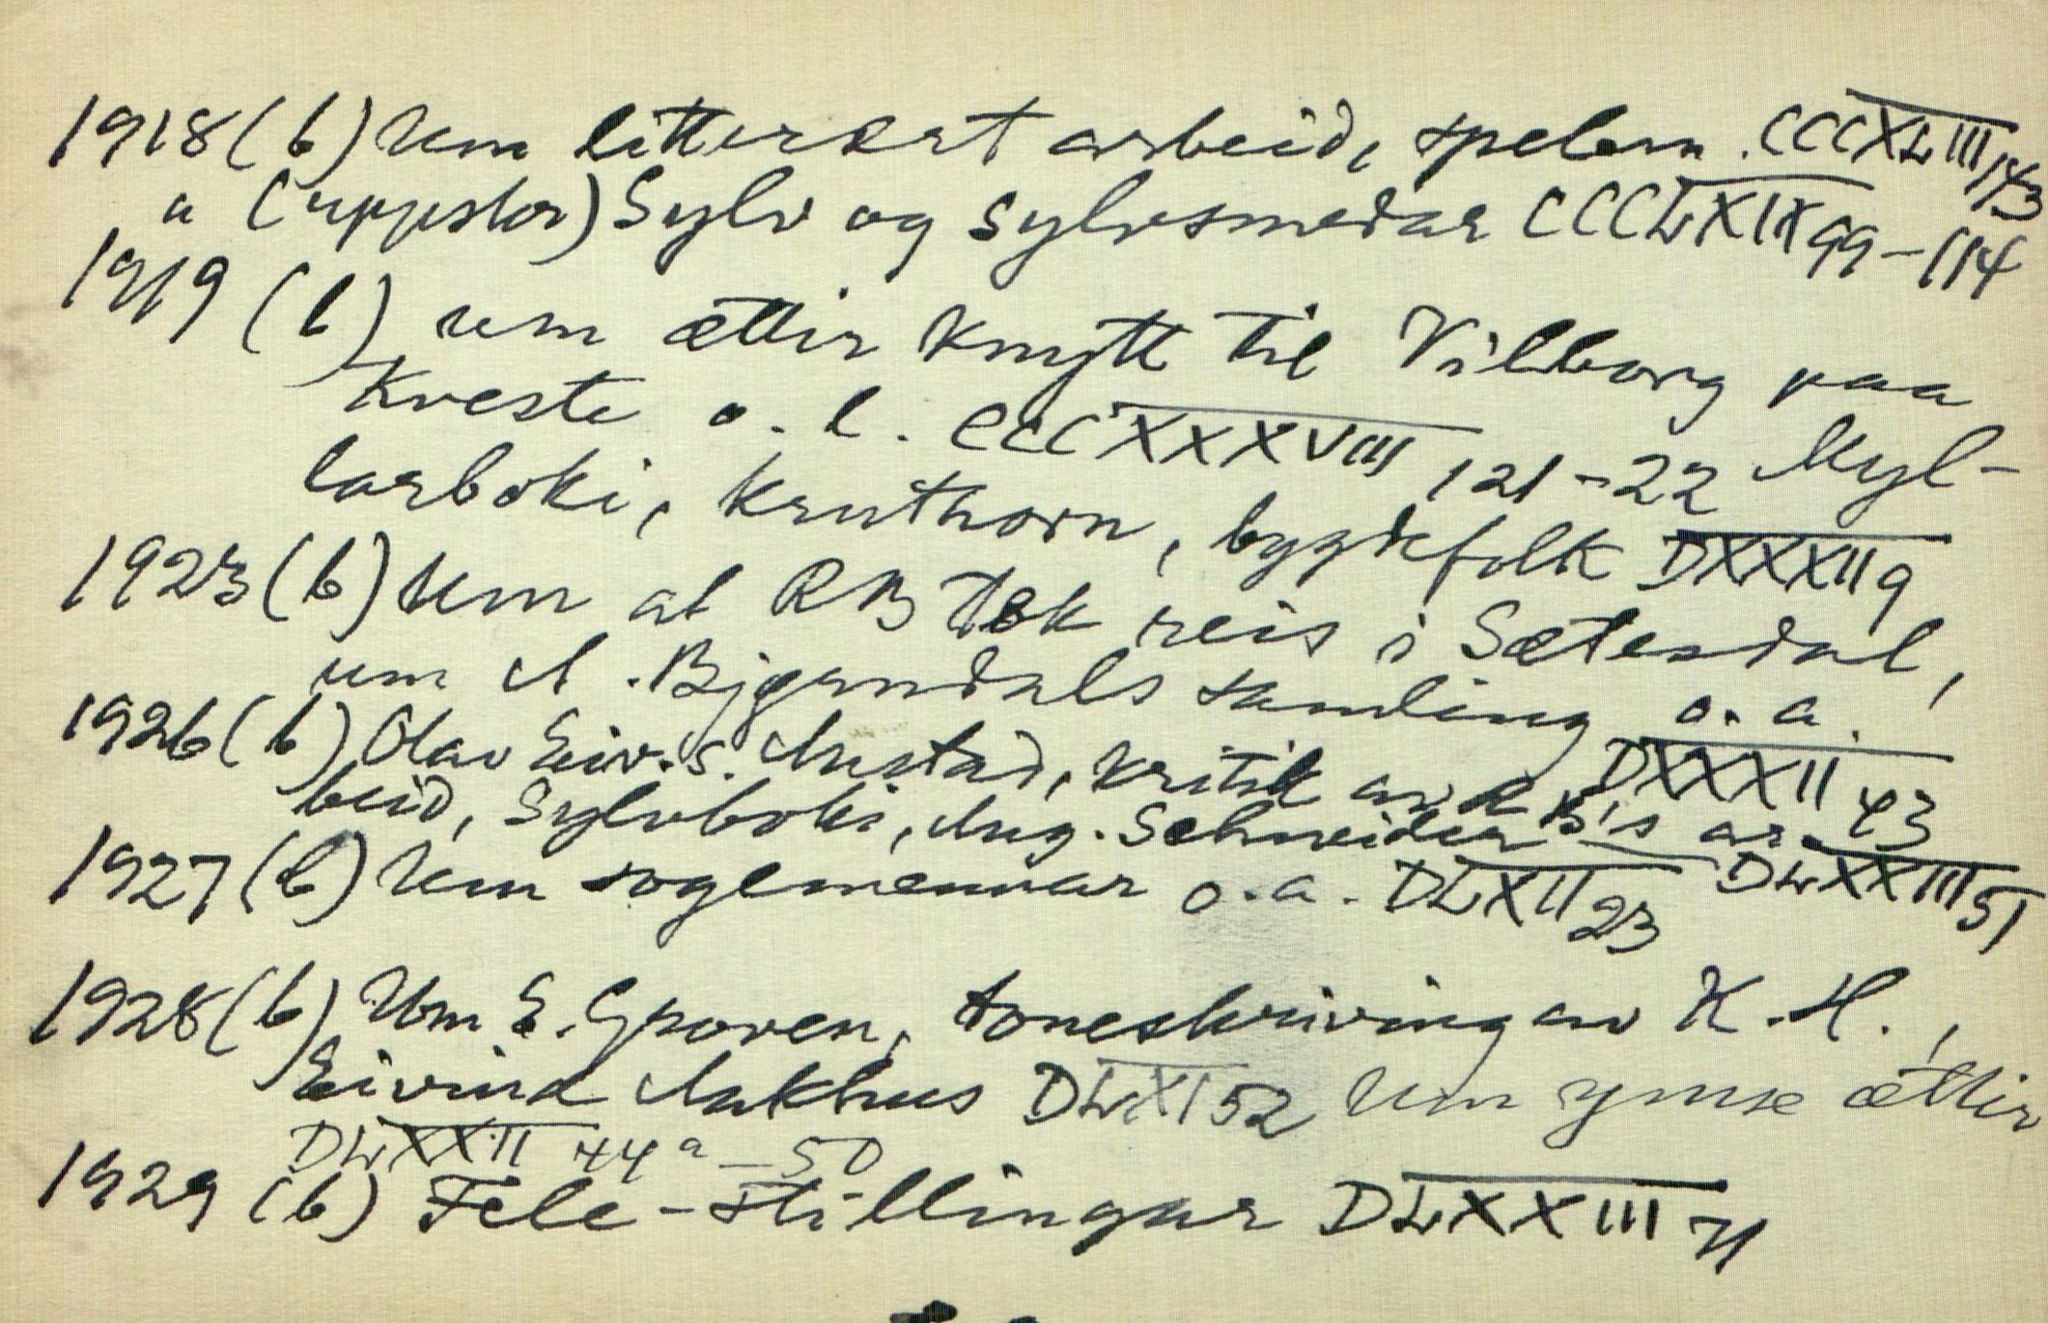 1918 (b) Um litterært arbeid, spelem. CCCXLIII 143
" (uppskr) Sylv og sylvsmedar CCCLXIX 99-114
1919 (b) um ættir knytt til Vilborg paa
Kveste o. l. CCCXXXVIII 121-22 Myl-
larboki, kruthorn, bygdefolk DXXXII 9
1923 (b) Um at RB tok reis i Sætesdal,
um A. Bjørndals samling o. a.
DXXXII 43
1926 (b) Olav Eiv.s. Austad, kritik av RB's ar-
beid, Sylvboki, Aug. Schneider DLXXIII 51
1927 (b) Um sogemennar o. a. DLXII 23
1928 (b) Um E. Groven, toneskriving av K. H.,
Eivind Aakhus DLXI 52 Um ymse ættir
DLXXII 44a-50
1929 (b) Fele-stillingar DLXXIII 71